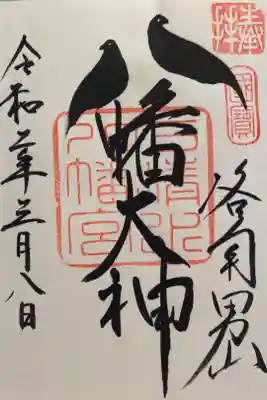 奉拝
國寶
洛南男山
八幡大神
石清水
八幡宮
令和二年三月八日